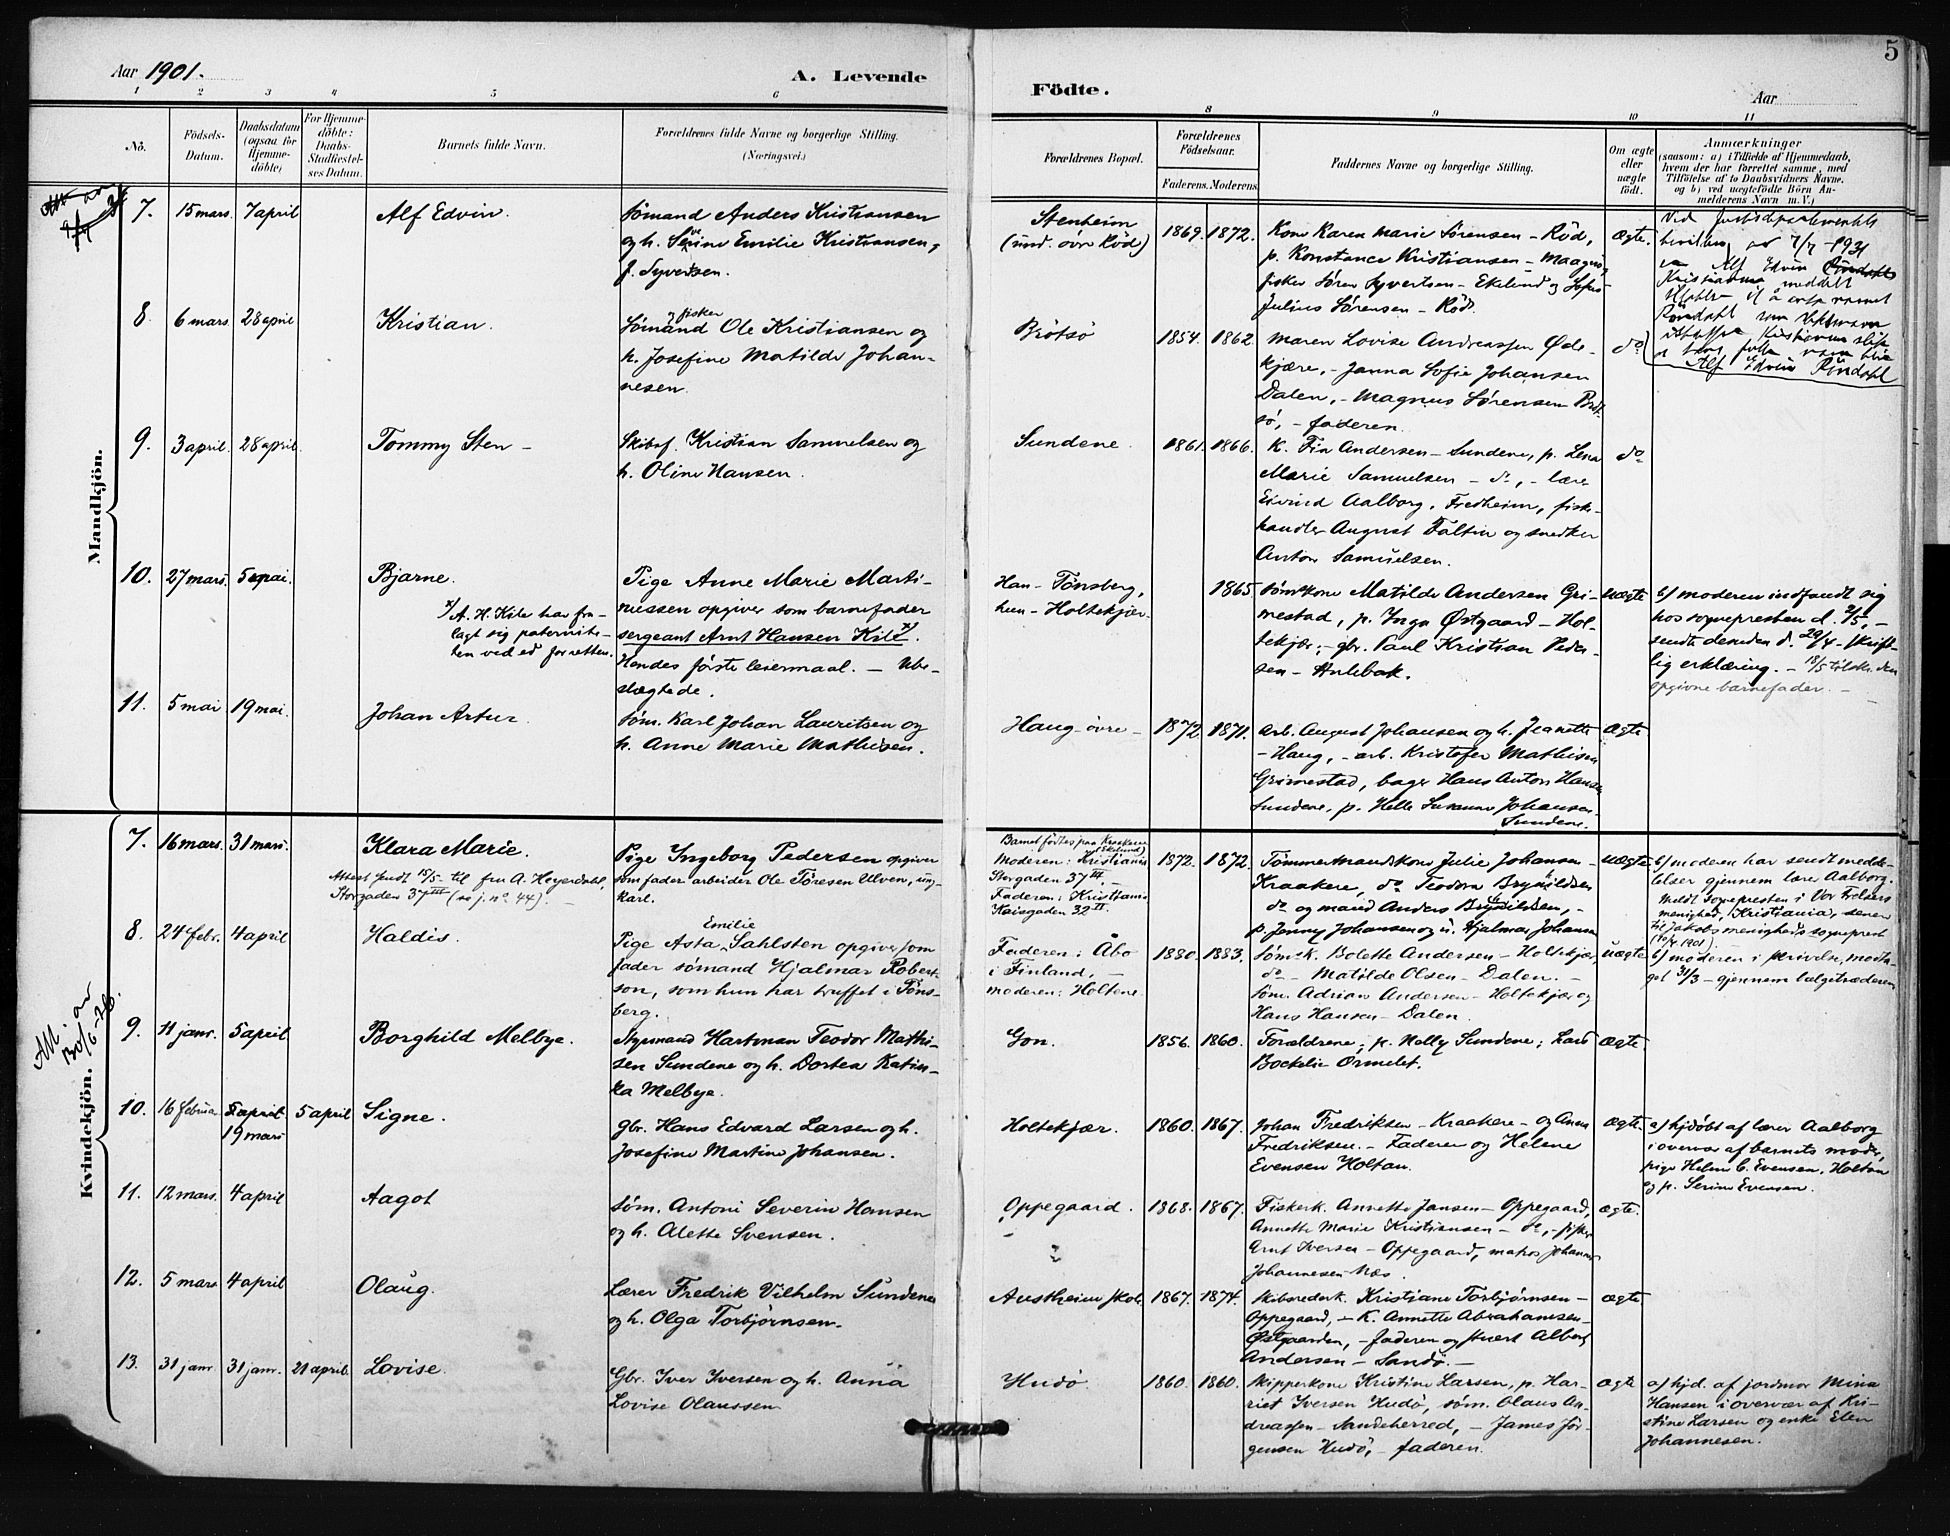 5
Aar 1901.
A. Levende
Födte.
Aar
1 2 3 4 5 6 8 9 10 11
Nô.
Födsels-
Datum.
Daabsdatum
(ogsaa for
Hjemme-
döbte)
For Hjemme-
döbte:
Daabs-
Stadfæstel-
ses Datum.
Barnets fulde Navn.
Forældrenes fulde Navne og borgerlige Stilling.
(Næringsvei.)
Forældrenes Bopæl.
Forældrenes
Födselsaar.
Faderens. Moderens.
Faddernes Navne og borgerlige Stilling.
Om ægte
eller
uægte
födt.
Anmærkninger
(saasom: a) i Tilfælde af Hjemmedaab,
hvem der har forrettet samme, med
Tilföielse af to Daabsvidners Navne,
og b) ved uægtefödte Börn An-
melderens Navn m. V.)
Mandkjön.
7. 15 mars. 7 april
Alf Edvin.
Sømand Anders Kristiansen
og h. Serine Emilie Kristiansen,
f. Syvertsen.
Stenheim
(und. øvre Rød)
1869. 1872.
Kone Karen Marie Sørensen - Rød,
p. Konstance Kristiansen - Maagerø,
fisker Søren Syvertsen - Ekelund og
Julius Sørensen - Rød.
ægte.
Ved Justisdepartementets
bevilling av 7/7 - 1931
er Alf Edvin
Kristiansen meddelt
å anta navnet
Rindahl som
Kristiansen
Alf Edvin Rindahl
8. 6 mars. 28 april
Kristian.
Sømand og fisker Ole Kristiansen og
h. Josefine Matilde Johan-
nesen.
Brøtsø
1854. 1862.
Maren Lovise Andreassen Øde-
kjære, - Janna Sofie Johansen
Dalen, - Magnus Sørensen Brøt-
sø, - faderen.
do
9. 3 april. 28 april.
Tommy Sten -
Skibsf. Kristian Samuelsen og
h. Oline Hansen.
Sundene.
1861. 1866.
K. Fin Andersen - Sundene, p. Lena
Marie Samuelsen - do, - lærer
Eivind Aalborg, Fredheim, fisk-
handler August Faltin og snedker
Anton Samuelsen.
do
10. 27 mars. 5 mai.
Bjarne.
x/ A. H. Kile har fra-
lagt sig paternite-
ten ved ed for retten.
Pige Anne Marie Marti-
nussen opgiver som barnefader
sergeant Arnt Hansen Kile x/.
Hendes første leiermaal. - Ube-
slægtede.
Han - Tønsberg,
hun - Holtekjær.
1865.
Sømkone Matilde Andersen Gri-
mestad, p. Inga Østgaard - Hol-
tekjær, - gbr. Paul Kristian Peder-
sen - Hulebak.
uægte
b/ moderen indfandt sig
hos sognepresten d. 2/5, -
sendte desuden d. 29/4 - skrift-
lig erklæring. - 18/5 tilskr. den
opgivne barnefader. -
11. 5 mai 19 mai.
Johan Artur.
Søm. Karl Johan Lauritsen og
h. Anne Marie Mathisen.
Haug øvre -
1872. 1871.
Arb. August Johansen og h. Jeanette
- Haug, - arb. Kristofer Mathisen
Grimestad, bager Hans Anton Hansen
Sundene, p. Helle Susanne Johansen
Sundene.
ægte
Kvindekjön.
7. 16 mars. 31 mars.
Klara Marie.
Attest sendt 15/5 til fru A. Heyerdahl,
Storgaden 37 III (se j. no 44). -
Pige Ingeborg Pedersen opgiver
som fader arbeider Ole Tøresen Ulven, ung-
karl.
Barnet fødtes paa Kraakere
(Ekelund)
Moderen: Kristiania
Storgaden 37 III. -
Faderen: Kristiania
Keisgaden 32 II.
1872. 1872.
Tømmermandskone Julie Johansen -
Kraakere, do Teodora Brynildsen
do og mand Anders Brynildsen, -
p. Jenny Johansen og u. Hjalmar Johansen
uægte
b/ moderen har sendt medde-
lelser gjennem lærer Aalborg.
Meldt sognepresten i Vor Frelsers
menighed, Kristiania, senere
til Jakobs menigheds sogneprest
(10/4 1901). -
8. 24 febr. 4 april
Haldis.
Pige Asta Emilie Sahlsten opgiver som
fader sømand Hjalmar Robert-
son, som hun har truffet i Tøns-
berg.
Faderen: Åbo
i Finland, -
Moderen: Holtene.
1880. 1883.
Søm. k. Bolette Andersen - Holtekjær,
do - Matilde Olsen - Dalen. -
Søm. Adrian Andersen - Holtekjær og
Hans Hansen - Dalen.
uægte
b/ moderen i skrivelse, modta-
get 31/3 - gjennem
Att. av
30/6-26.
9. 11 janr. 5 april
Borghild Melbye.
Styrmand Hartman Teodor Mathi-
sen Sundene og h. Dortea Katin-
ka Melbye.
Gon.
1856. 1860.
Forældrene, p. Nelly Sundene; Lars
Bockelie Ormelet.
ægte.
10. 16 februar 5 april 5 april
19 mars
Signe.
Gbr. Hans Edvard Larsen og h.
Josefine Martine Johansen.
Holtekjær.
1860. 1867.
Johan Fredriksen - Kraakere - og Anna
Fredriksen. - Faderen og Helene
Evensen Holtan.
ægte.
a/ hjdøbt af lærer Aalborg
i overvær af barnets moder,
pige Helene C. Evensen, Holtan
og p. Serine Evensen.
11. 12 mars. 4 april
Aagot
Søm. Antoni Severin Hansen
og h. Alette Svensen.
Oppegaard.
1868. 1867.
Fiskerk. Annette Jansen - Oppegaard,
Annette Marie Kristiansen - do, - fisker
Arnt Iversen - Oppegaard, matros Johannes
Johannesen Næs.
ægte.
12. 5 mars 4 april
Olaug.
Lærer Fredrik Vilhelm Sundene
og h. Olga Torbjørnsen.
Austheim skole
1867. 1874.
Skibsrederk. Kristiane Torbjørnsen -
Oppegaard, - K. Annette Abrahamsen -
Østgaarden, - faderen og stuert Albert
Andersen - Sandø. -
ægte
13. 31 janr. 31 janr. 21 april.
Lovise.
Gbr. Iver Iversen og h. Anna
Lovise Olaussen
Hudø.
1860. 1860.
Skipperkone Kristine Larsen, p. Har-
riet Iversen Hudø, søm. Olaus An-
dreassen - Sandeherred, - James Jør-
gensen Hudø, - faderen.
ægte
a/ hjd. af jordmor Mina
Hansen i overvær af Kri-
stine Larsen og enke Elen
Johannesen.